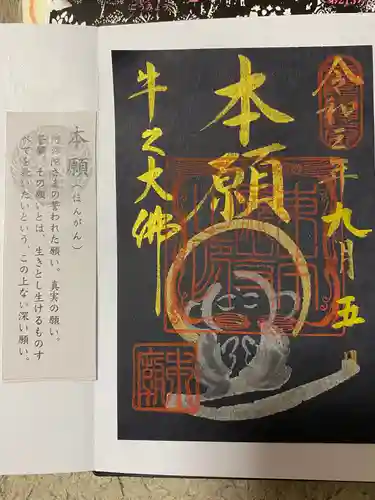 令和三年九月五日
本願
牛久大佛
本願(ほんがん)
阿弥陀さまの誓われた願い。真実の願い。
誓願。その願いとは、生きとし生けるものす
べてを救いたいという、この上ない深い願い。